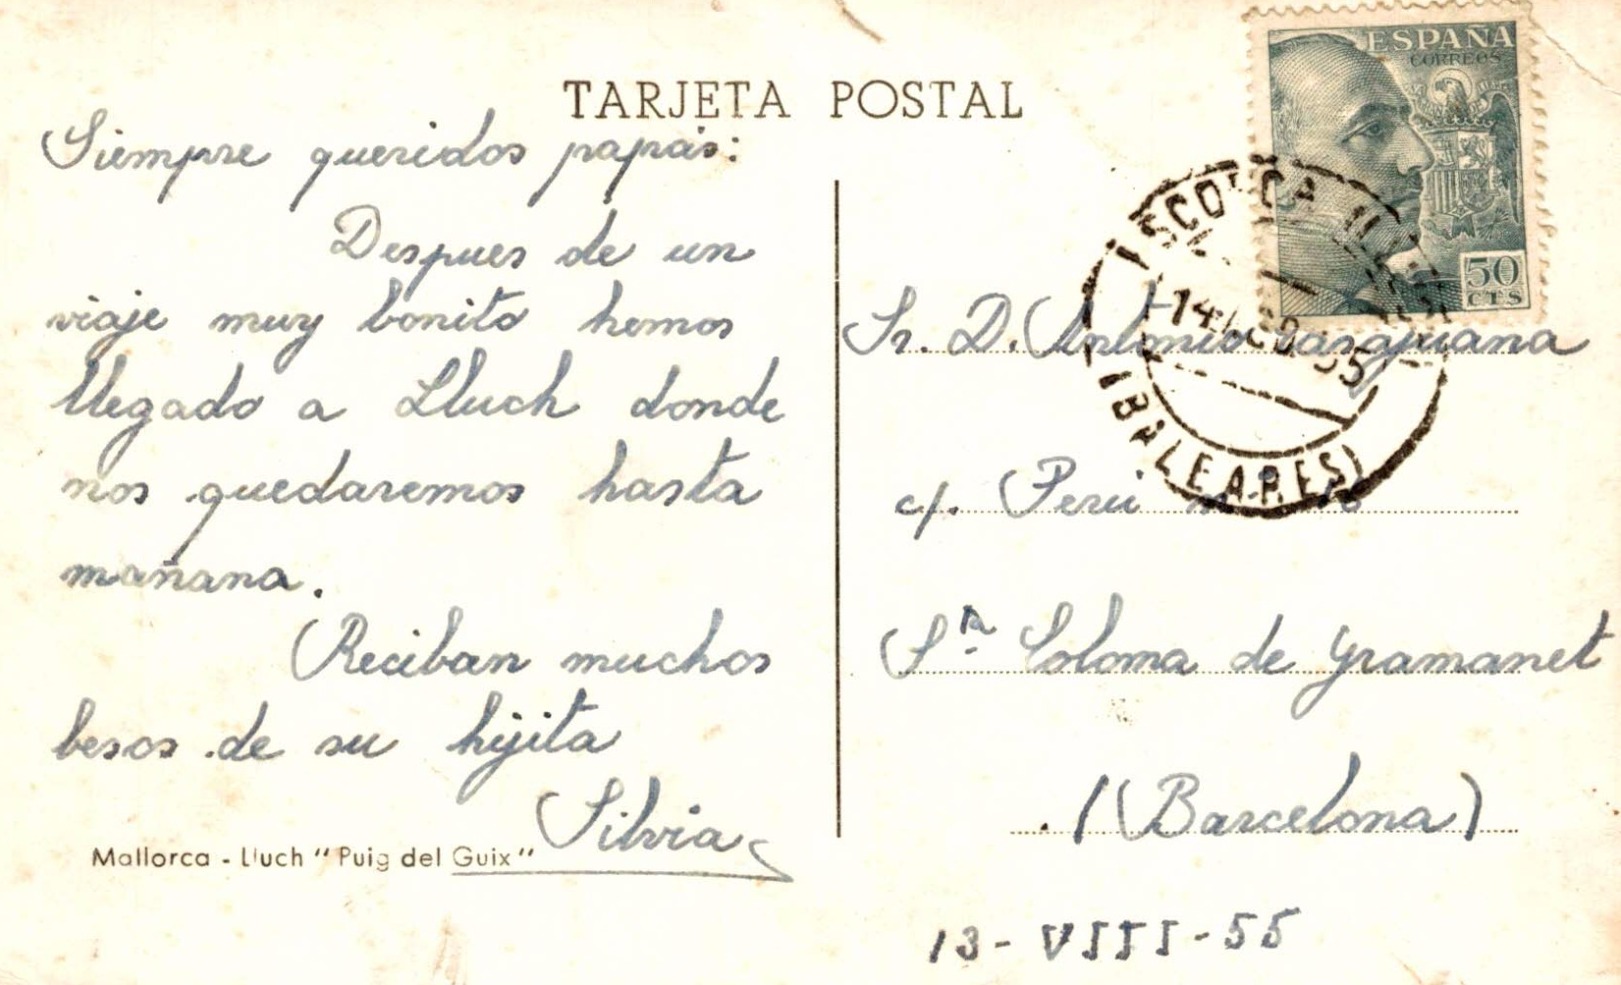 TARJETA POSTAL
Siempre queridos papás:
Despues de un
viaje muy bonito hemos
llegado a Lluch donde
nos quedaremos hasta
mañana.
Reciban muchos
besos de su hijita
Silvia
Mallorca - Lluch "Puig del Guix"
ESPAÑA
CORREOS
50
CTS
ESCORCA
(BALEARES)
Sr. D. Antonio Casajuana
c/. Perú
Sta. Coloma de Gramanet
(Barcelona)
13-VIII-55